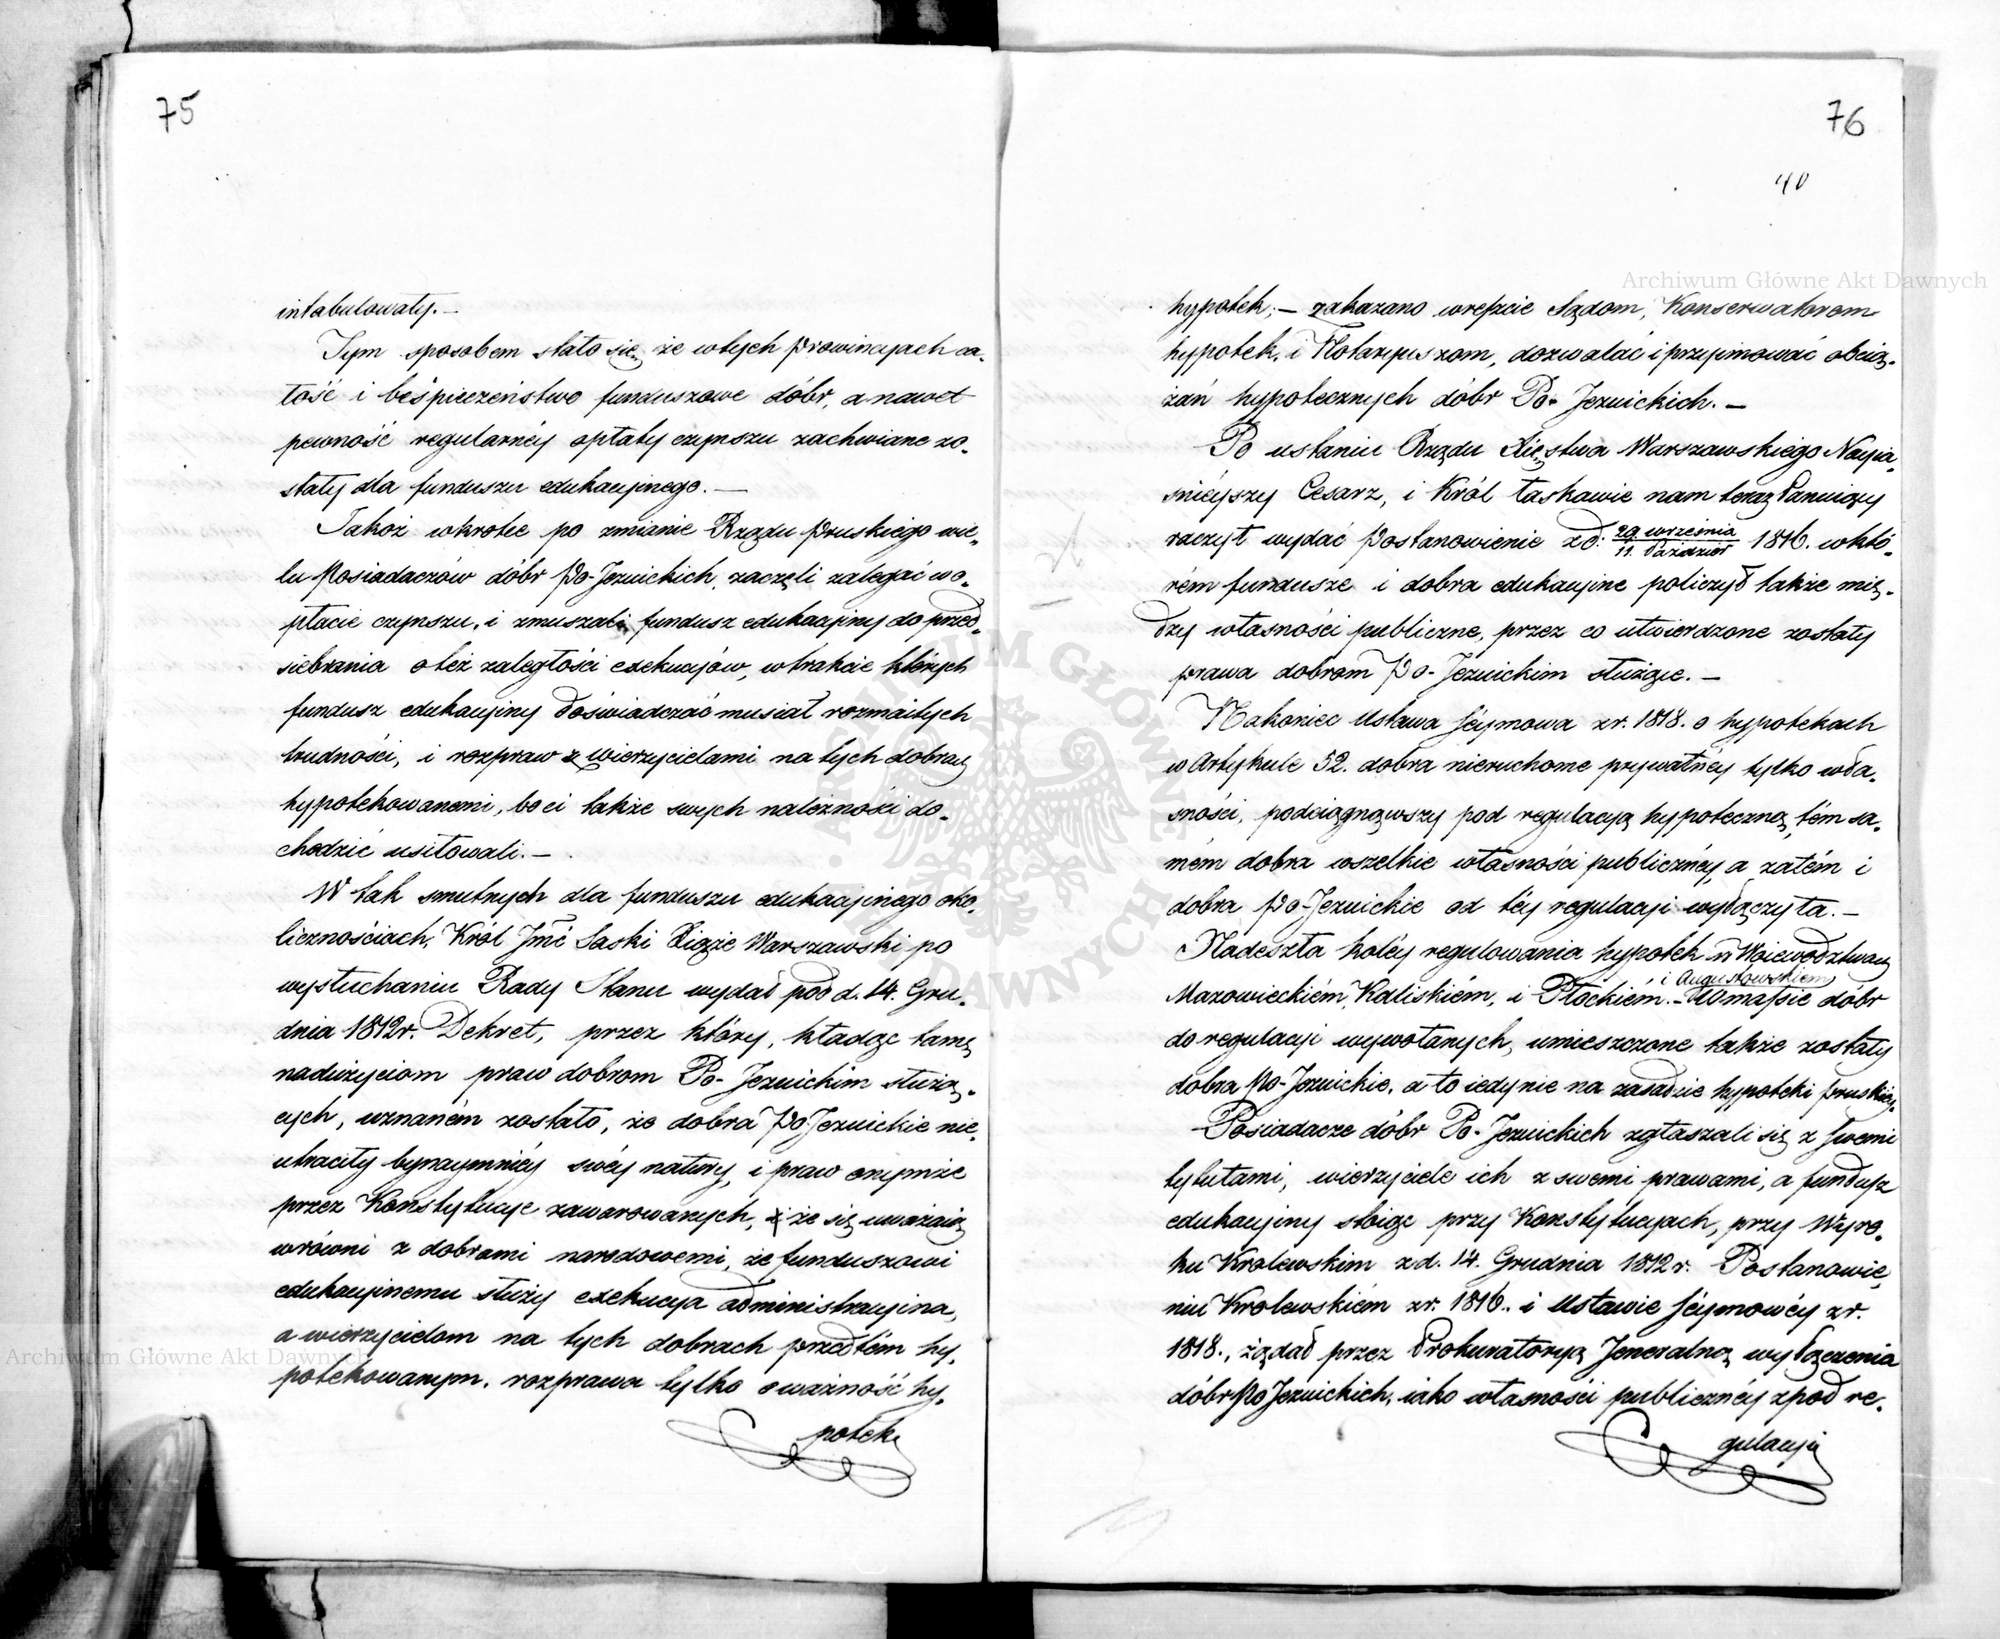 75
intabulowały.—
Tym sposobem stało się, że w tych Prowincyach ca-
łość i beśpieczeństwo funduszowe dóbr, a nawet
pewność regularnéy opłaty czynszu zachwiane zo-
stały dla funduszu edukacyjnego.—
Jakoż wkrotce po zmianie Rządu Pruskiego wie-
lu Posiadaczów dóbr Po-Jezuickich, zaczęli zalegać w o-
płacie czynszu, i zmuszali fundusz edukacyjny do przed-
siebrania o też zaległości exekucyów, w trakcie których
fundusz edukacyjny doświadczać musiał rozmaitych
trudności, i rozpraw z Wierzycielami na tych dobrach
hypotekowanemi, bo ci także swych należności do-
chodzić usiłowali.—
W tak smutnych dla funduszu edukacyjnego oko-
licznościach, Król Jmć Saski Xiąże Warszawski po
wysłuchaniu Rady Stanu wydał pod d. 14. Gru-
dnia 1812r. Dekret, przez który, kładąc tamę
nadużyciom praw dobrom Po-Jezuickim służą-
cych, uznaném zostało, że dobra Po-Jezuickie nie-
utraciły bynaymniéy swéy natury, i praw onymże
przez Konstytucye zawarowanych, że się uważaią
wrówni z dobrami narodowemi, że funduszowi
edukacyjnemu służy exekucya administracyina,
a wierzycielom na tych dobrach przedtém hy-
potekowanym, rozprawa tylko o ważność hy-
potek
76
40
hypotek;— zakazano wreszcie Sądom, Konserwatorom
hypotek, i Notaryuszom, dozwalać i przyimować obcią-
żań hypotecznych dóbr Po-Jezuickich.—
Po ustaniu Rządu Xięstwa Warszawskiego Nayia-
śnieyszy Cesarz, i Król łaskawie nam teraz Panuiący
raczył wydać Postanowienie z d: 29 września / 11. Paździer 1816. w któ-
rém fundusze i dobra edukacyjne policzył także mię-
dzy własności publiczne, przez co utwierdzone zostały
prawa dobrom Po-Jezuickim służące.—
Nakoniec Ustawa Séymowa z r. 1818. o hypotekach
w Artykule 52. dobra nieruchome prywatnéy tylko wła-
sności, podciągnąwszy pod regulacyą hypoteczną, tém sa-
mém dobra wszelkie własności publicznéy, a zatém i
dobra Po-Jezuickie od téy regulacyi wyłączyła.—
Nadeszła koléy regulowania hypotek w Woiewództwach
i Augustowskiem
Mazowieckiém, Kaliskiém, i Płockiém.— W massie dóbr
do regulacyi wywołanych, umieszczone także zostały
dobra Po-Jezuickie, a to iedynie na zasadzie hypoteki pruskiéy.
Posiadacze dóbr Po-Jezuickich zgłaszali się z swemi
tytułami, wierzyciele ich z swemi prawami, a fundusz
edukacyjny stoiąc przy Konstytucyach, przy Wyro-
ku Krolewskim z d. 14. Grudnia 1812 r. Postanowie-
niu Krolewskiém z r. 1816., i Ustawie Séymowéy z r.
1818., żądał przez Prokuratoryą Jeneralną wyłączenia
dóbr Po Jezuickich, iako własności publicznéy z pod re-
gulacyi
Archiwum Główne Akt Dawnych
Archiwum Główne Akt Dawnych
ARCHIWUM GŁÓWNE AKT DAWNYCH